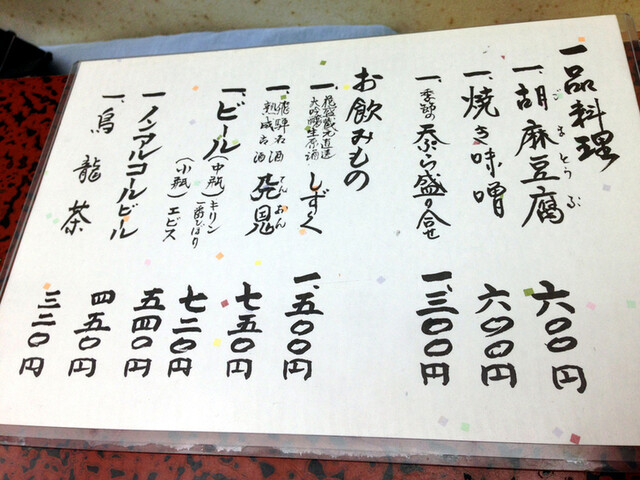 一品料理
一、胡麻豆腐 六〇〇円
ごまとうふ
一、焼き味噌 六〇〇円
一、季節の天ぷら盛り合せ 一、三〇〇円
お飲みもの
一、蔵元直送 しずく 一、五〇〇円
大吟醸生原酒
一、飛騨 七五〇円
熟成古酒
一、ビール (中瓶) キリン一番しぼり 七二〇円
(小瓶) エビス 五四〇円
一、ノンアルコールビール 四五〇円
一、烏龍茶 三二〇円